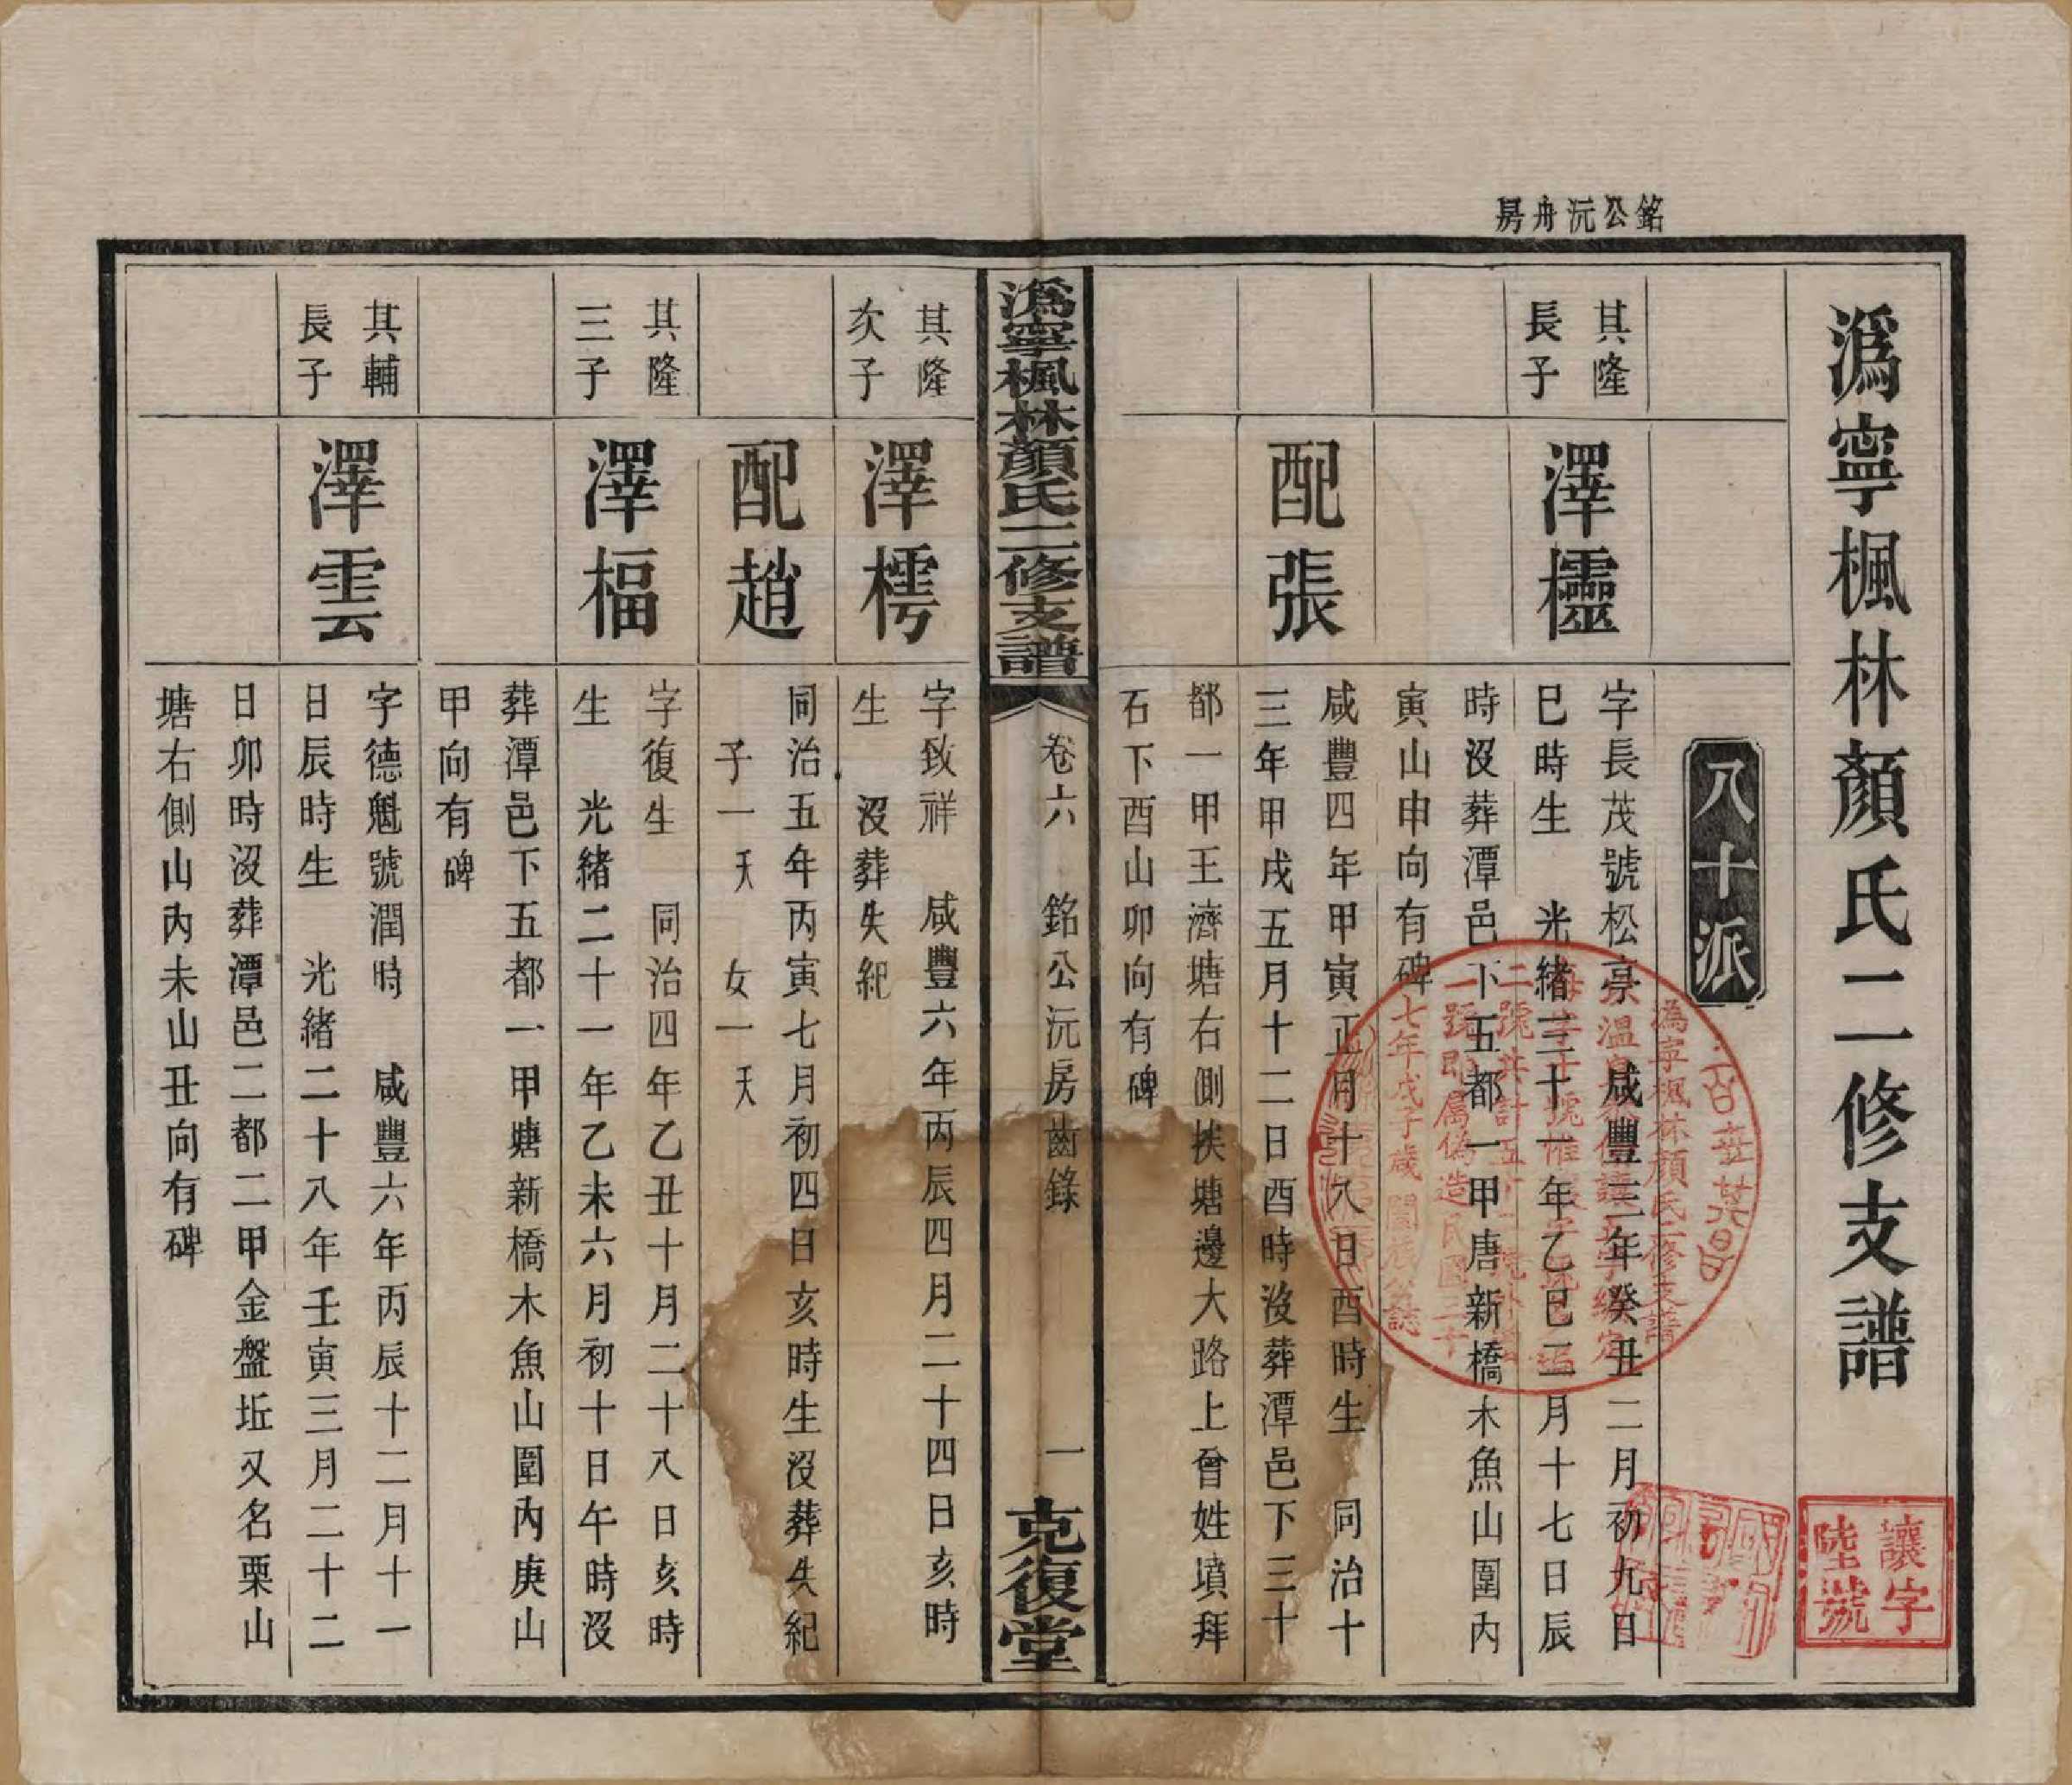 銘公沅舟房
溈寧楓林顏氏二修支譜
讓字
陸號
八十派
其隆
長子
澤櫺
字長茂號松亭　咸豐三年癸丑二月初九日
巳時生　光緒三十一年乙巳二月十七日辰
時沒葬潭邑下五都一甲唐新橋木魚山圍內
寅山申向有碑
配張
咸豐四年甲寅正月十八日酉時生　同治十
三年甲戌五月十二日酉時沒葬潭邑下三十
都一甲王濟塘右側挨塘邊大路上曾姓墳拜
石下酉山卯向有碑
溈寧楓林顏氏二修支譜
卷六　銘公沅房齒錄
一
克復堂
其隆
次子
澤樗
字致祥　咸豐六年丙辰四月二十四日亥時
生　沒葬失紀
配趙
同治五年丙寅七月初四日亥時生沒葬失紀
子一　夭　女一　夭
其隆
三子
澤楅
字復生　同治四年乙丑十月二十八日亥時
生　光緒二十一年乙未六月初十日午時沒
葬潭邑下五都一甲塘新橋木魚山圍內庚山
甲向有碑
其輔
長子
澤雲
字德魁號潤時　咸豐六年丙辰十二月十一
日辰時生　光緒二十八年壬寅三月二十二
日卯時沒葬潭邑二都二甲金盤坵又名栗山
塘右側山內未山丑向有碑
溈寧楓林顏氏二修支譜